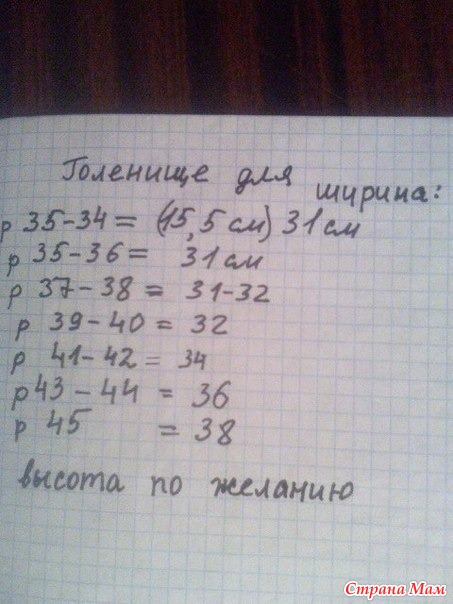 Голенище для ширина:
р 35-34 = (15,5 см) 31 см
р 35-36 = 31 см
р 37-38 = 31-32
р 39-40 = 32
р 41-42 = 34
р 43-44 = 36
р 45 = 38
высота по желанию
Страна Мам